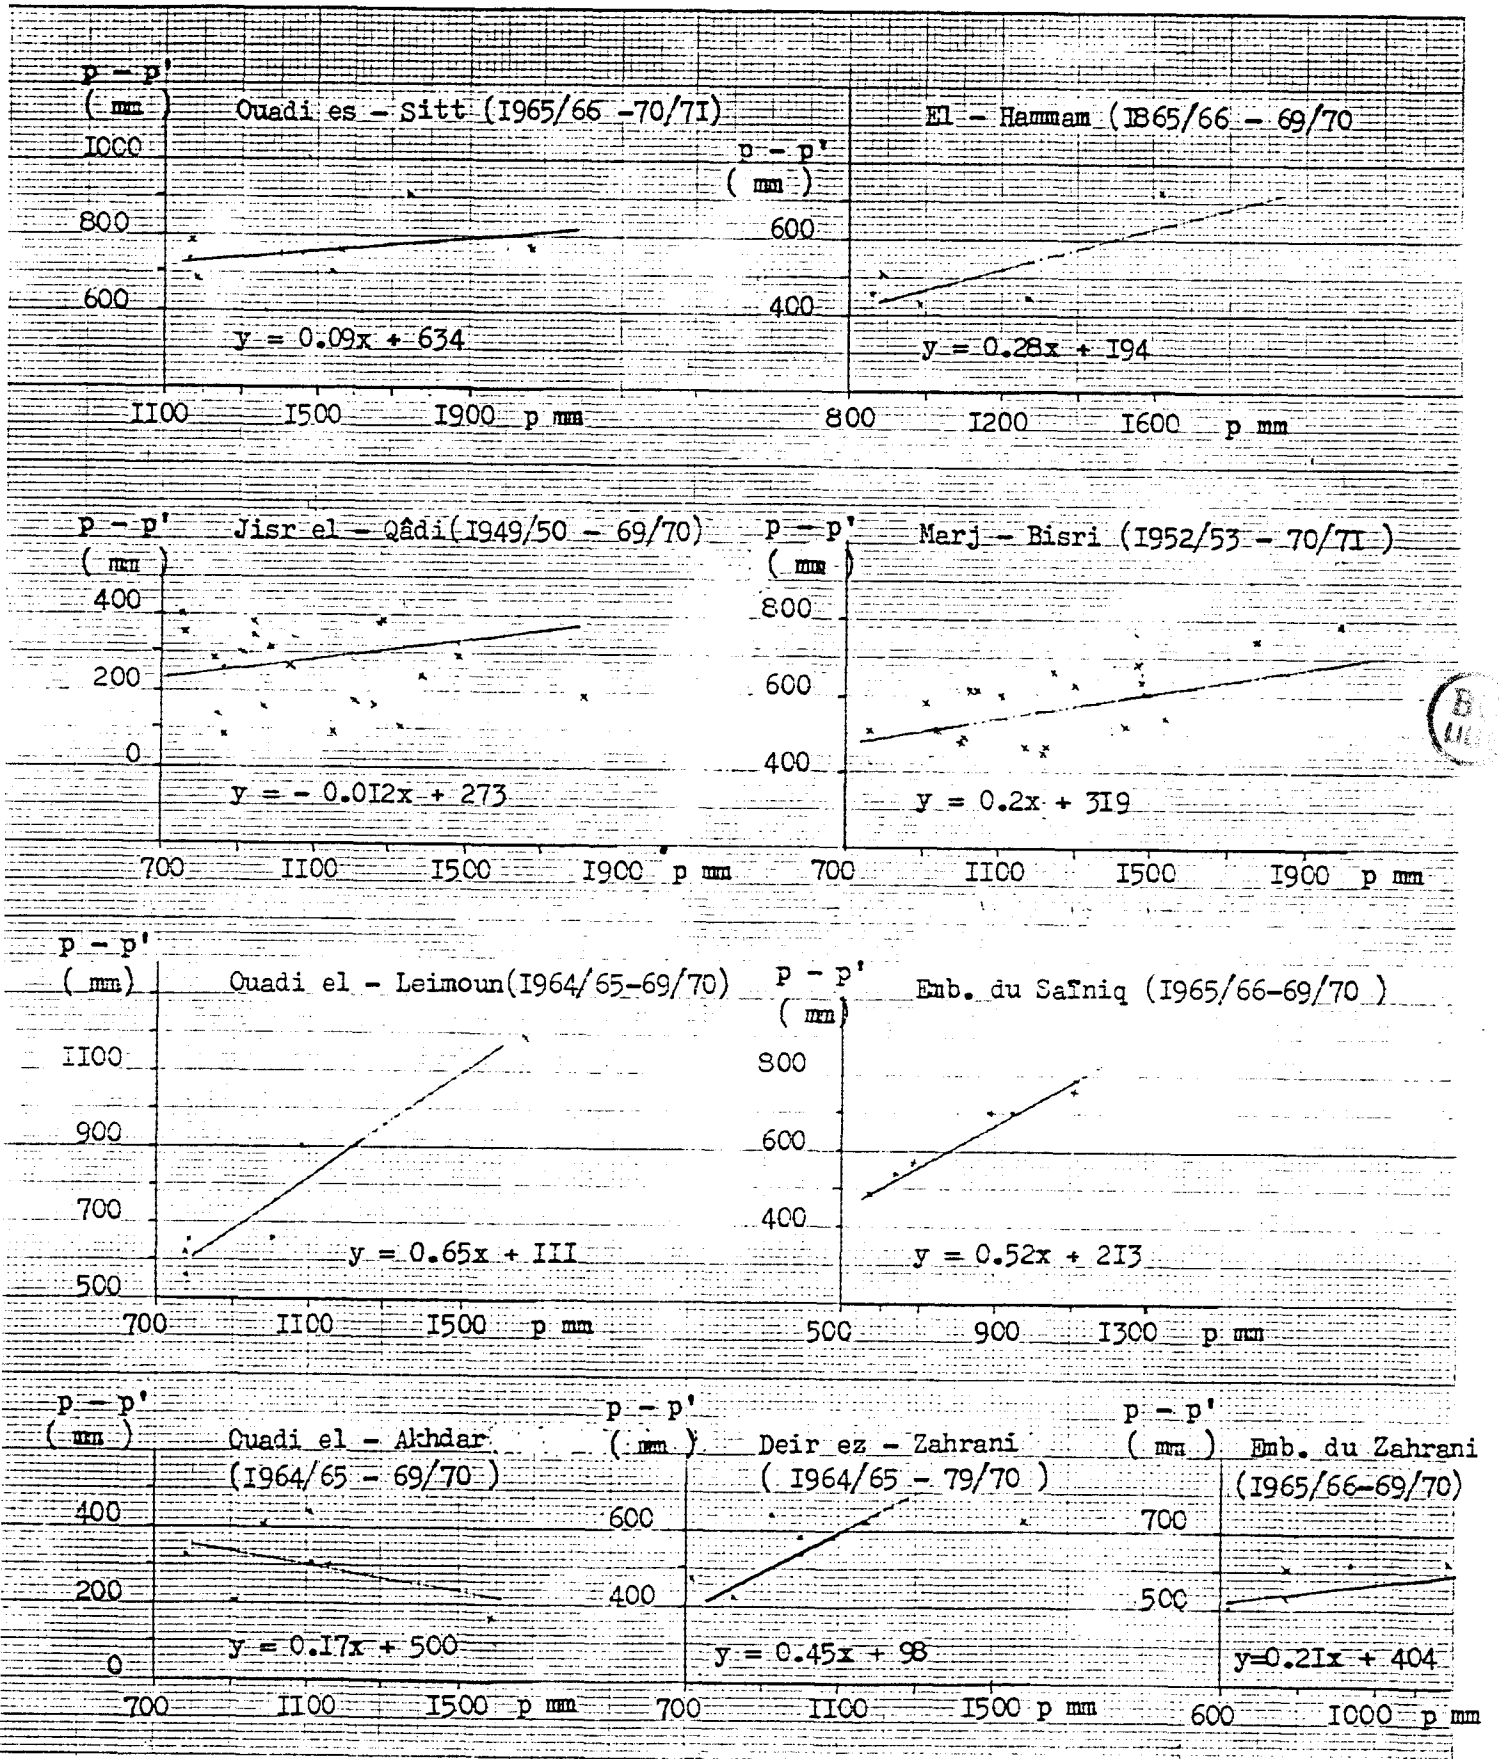 p - p'
( mm )
Ouadi es - Sitt (I965/66 -70/7I)
I000
800
600
y = 0.09x + 634
II00 I500 I900 p mm
El - Hammam (I865/66 - 69/70
p - p'
( mm )
600
400
y = 0.28x + I94
800 I200 I600 p mm
p - p'
( mm )
Jisr el - Qâdi(I949/50 - 69/70)
400
200
0
y = - 0.0I2x + 273
700 II00 I500 I900 p mm
p - p'
( mm )
Marj - Bisri (I952/53 - 70/7I )
800
600
400
y = 0.2x + 3I9
700 II00 I500 I900 p mm
p - p'
( mm)
Ouadi el - Leimoun(I964/65-69/70)
II00
900
700
500
y = 0.65x + III
700 II00 I500 p mm
p - p'
( mm)
Emb. du Saïniq (I965/66-69/70 )
800
600
400
y = 0.52x + 2I3
500 900 I300 p mm
p - p'
( mm )
Ouadi el - Akhdar
(I964/65 - 69/70 )
400
200
0
y = 0.I7x + 500
700 II00 I500 p mm
p - p'
( mm )
Deir ez - Zahrani
( I964/65 - 79/70 )
600
400
y = 0.45x + 98
700 II00 I500 p mm
p - p'
( mm )
Emb. du Zahrani
(I965/66-69/70)
700
500
y=0.2Ix + 404
600 I000 p mm